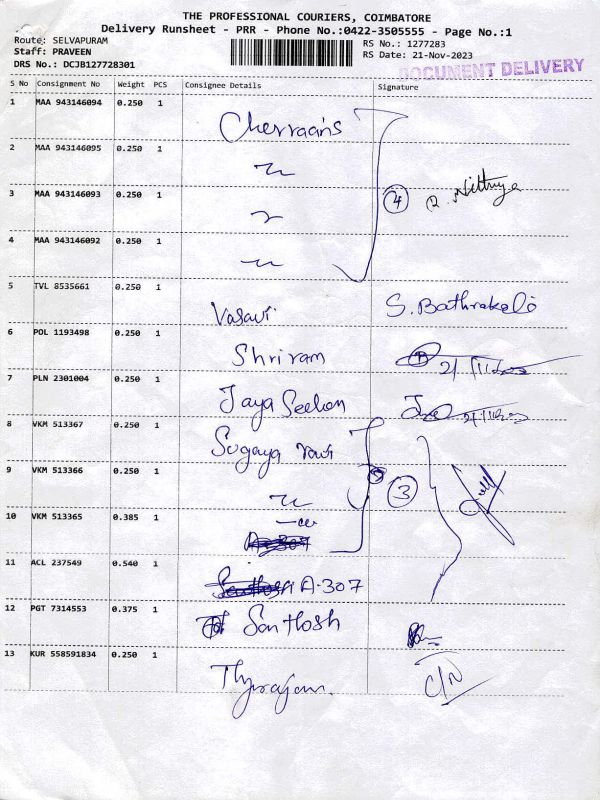 THE PROFESSIONAL COURIERS, COIMBATORE
Delivery Runsheet - PRR - Phone No.:0422-3505555 - Page No.:1
Route: SELVAPURAM
Staff: PRAVEEN
DRS No.: DCJB127728301
RS No.: 1277283
RS Date: 21-Nov-2023
DOCUMENT DELIVERY
S No Consignment No Weight PCS Consignee Details Signature
1 MAA 943146094 0.250 1
2 MAA 943146095 0.250 1
3 MAA 943146093 0.250 1 4 R. Nithya
4 MAA 943146092 0.250 1
5 TVL 8535661 0.250 1 Vasavi S. Bathrakali
6 POL 1193498 0.250 1 Shriram
7 PLN 2301004 0.250 1 Jaya
8 VKM 513367 0.250 1
9 VKM 513366 0.250 1 3
10 VKM 513365 0.385 1
11 ACL 237549 0.540 1 A-307
12 PGT 7314553 0.375 1 Santhosh
13 KUR 558591834 0.250 1